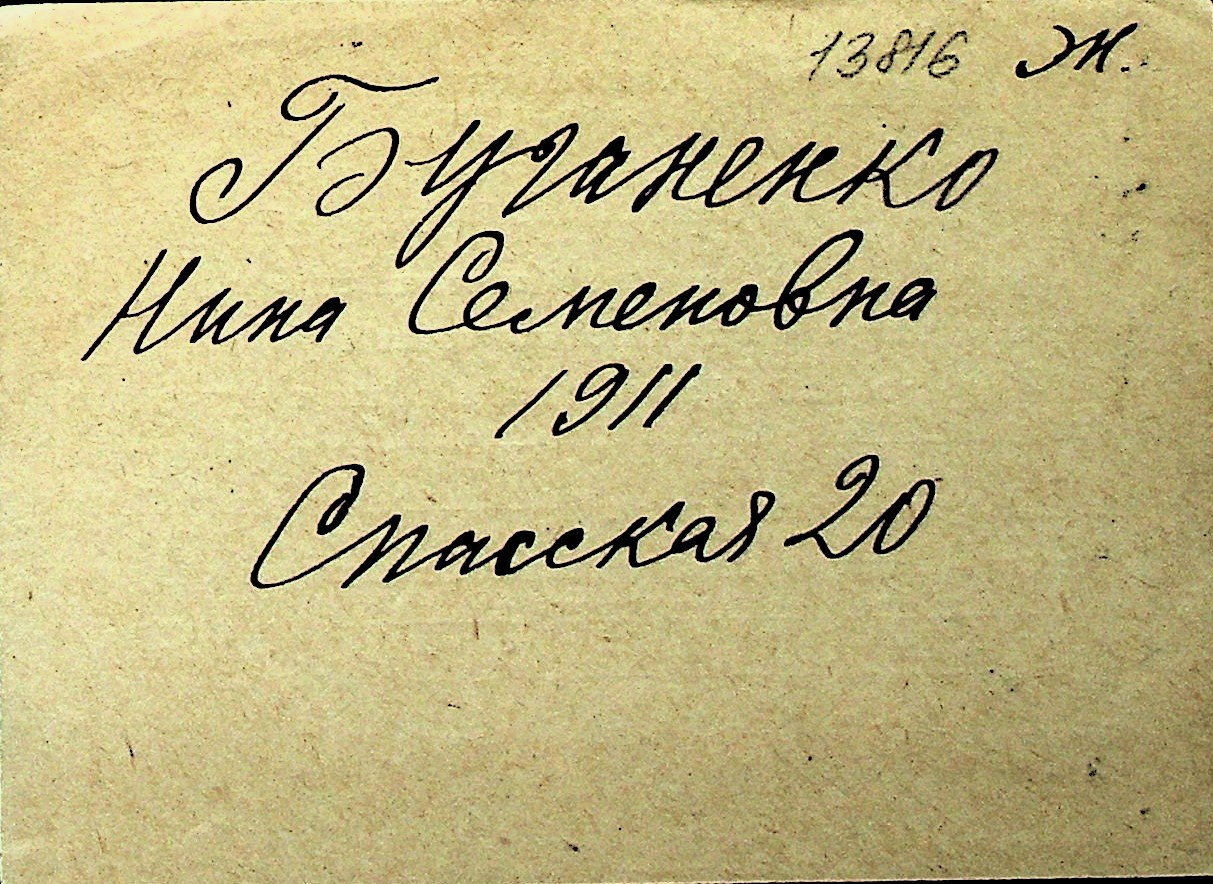 13816 Ж.
Буганенко
Нина Семеновна
1911
Спасская 20